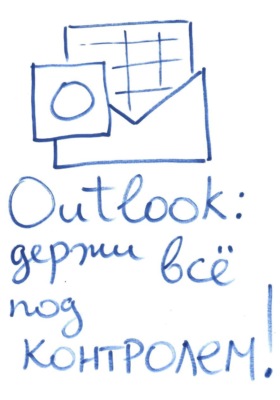 Outlook:
держи всё
под
контролем!